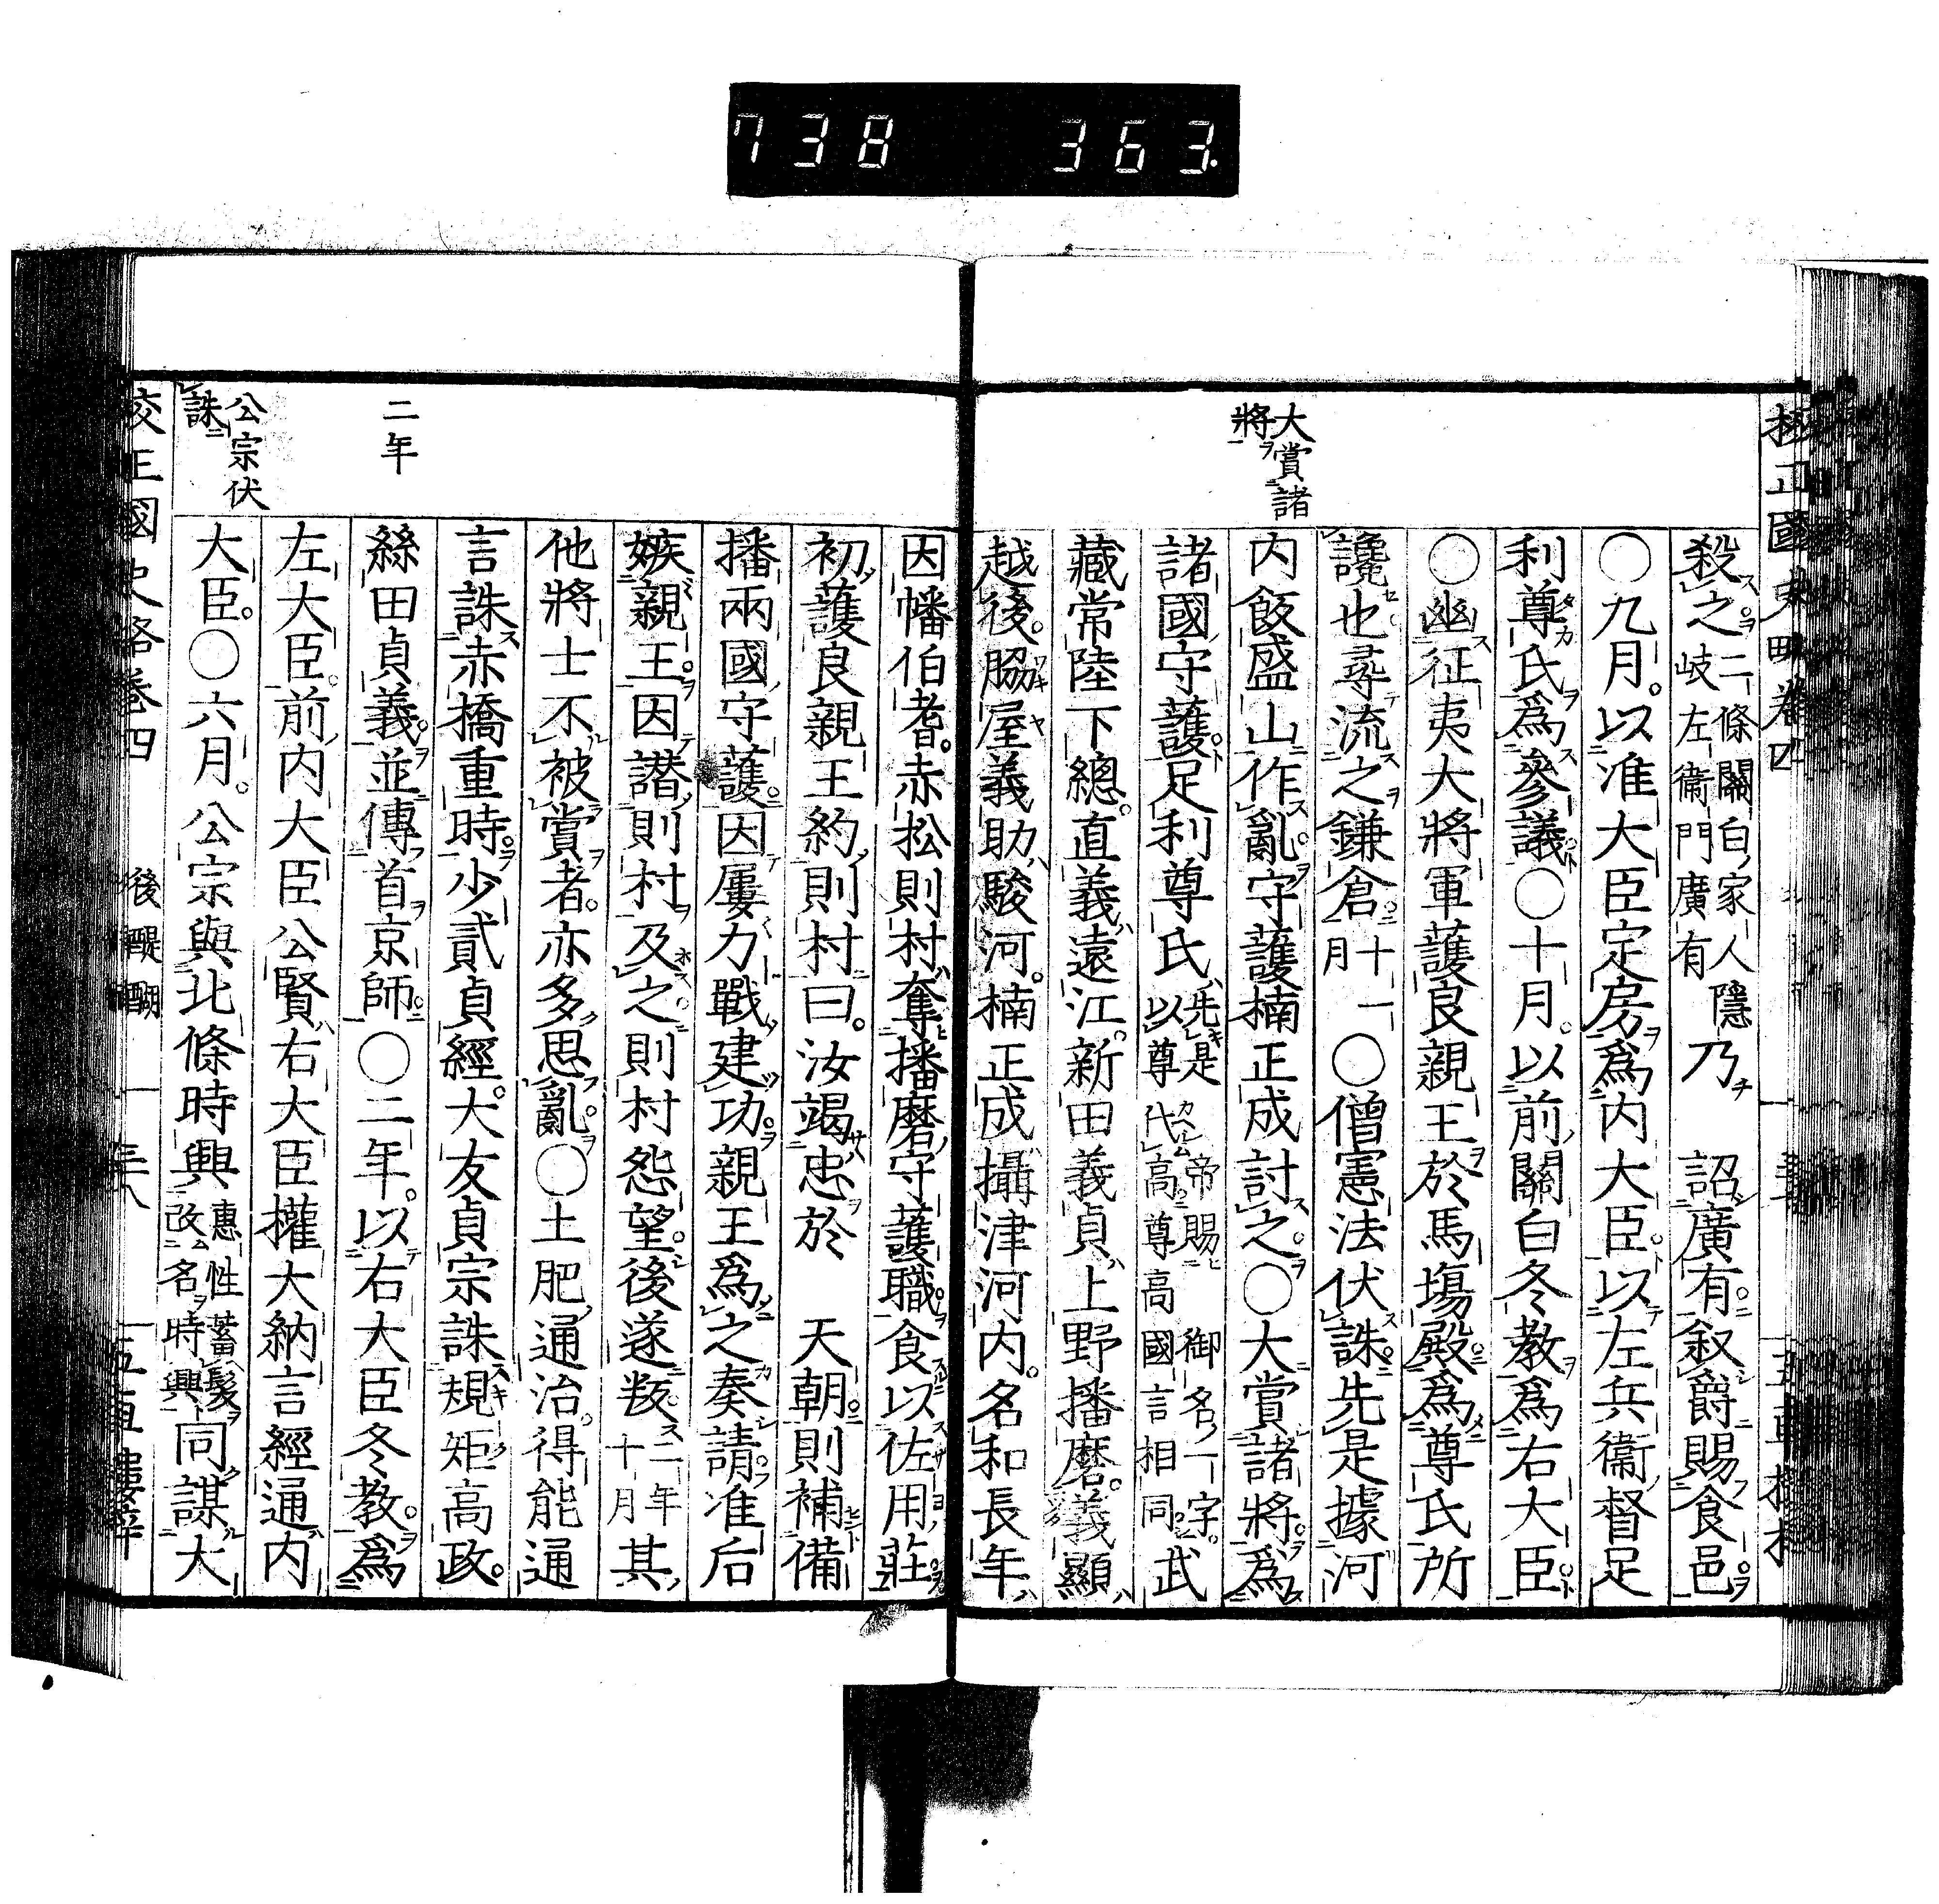 738 363
大賞諸
將
殺之二條關白家人隱岐左衞門廣有乃 詔廣有叙爵賜食邑
〇九月。以准大臣定房爲内大臣。以左兵衞督足
利尊氏爲參議〇十月。以前關白冬教爲右大臣
〇幽征夷大將軍護良親王於馬塲殿爲尊氏所
讒也尋流之鎌倉十一月〇僧憲法伏誅先是據河
内飯盛山作亂守護楠正成討之〇大賞諸將爲
諸國守護足利尊氏先是以尊代高帝賜尊高御名一字。國言相同武
藏常陸下總。直義遠江。新田義貞上野播磨。義顯
越後。脇屋義助駿河。楠正成攝津河内。名和長年
因幡伯耆。赤松則村奪播磨守護職食以佐用莊
初護良親王約則村曰。汝竭忠於 天朝則補備
播兩國守護因屢力戰建功親王爲之奏請准后
嫉親王因譖則村及之則村怨望後遂叛二年十月其
他將士不被賞者。亦多思亂〇土肥通治。得能通
言誅赤橋重時。少貳貞經。大友貞宗誅規矩高政。
絲田貞義並傳首京師〇二年。以右大臣冬教爲
左大臣。前内大臣公賢右大臣權大納言經通内
大臣。〇六月。公宗與北條時興惠性蓄髮改名時興同謀大
二年
公宗伏
誅
校正國史略卷四 後醍醐 五車樓梓